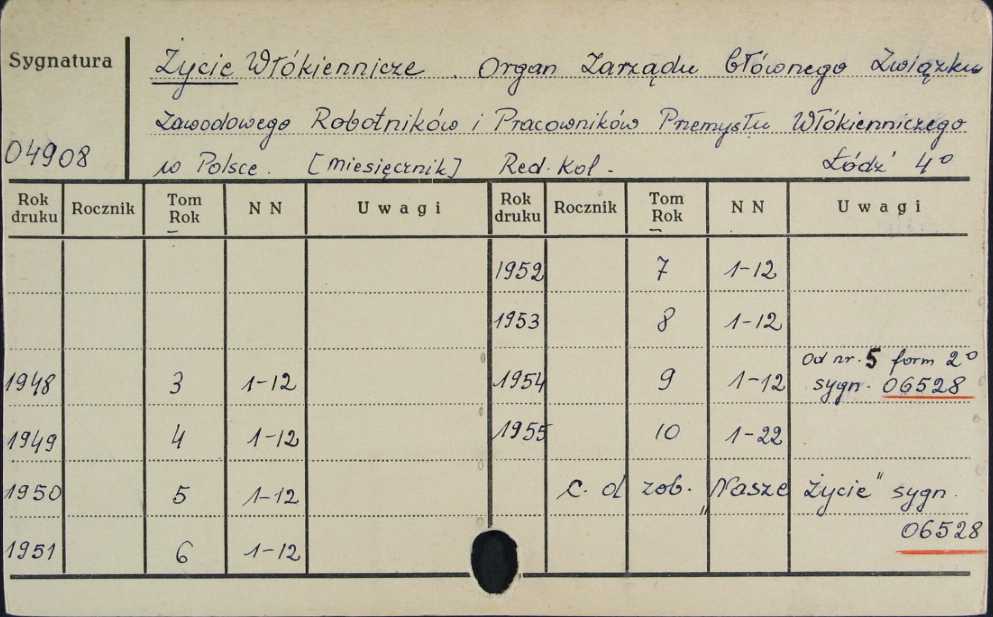 Sygnatura Życie Włókiennicze. Organ Zarządu Głównego Związku
Zawodowego Robotników i Pracowników Przemysłu Włókienniczego
04908 w Polsce. [miesięcznik] Red. Kol. Łódź 4°
Rok druku Rocznik Tom Rok N N Uwagi Rok druku Rocznik Tom Rok N N Uwagi
1952 7 1-12
1953 8 1-12
Od nr. 5 form 2°
1948 3 1-12 1954 9 1-12 sygn. 06528
1949 4 1-12 1955 10 1-22
1950 5 1-12 C. d zob. „Nasze Życie" sygn.
06528
1951 6 1-12